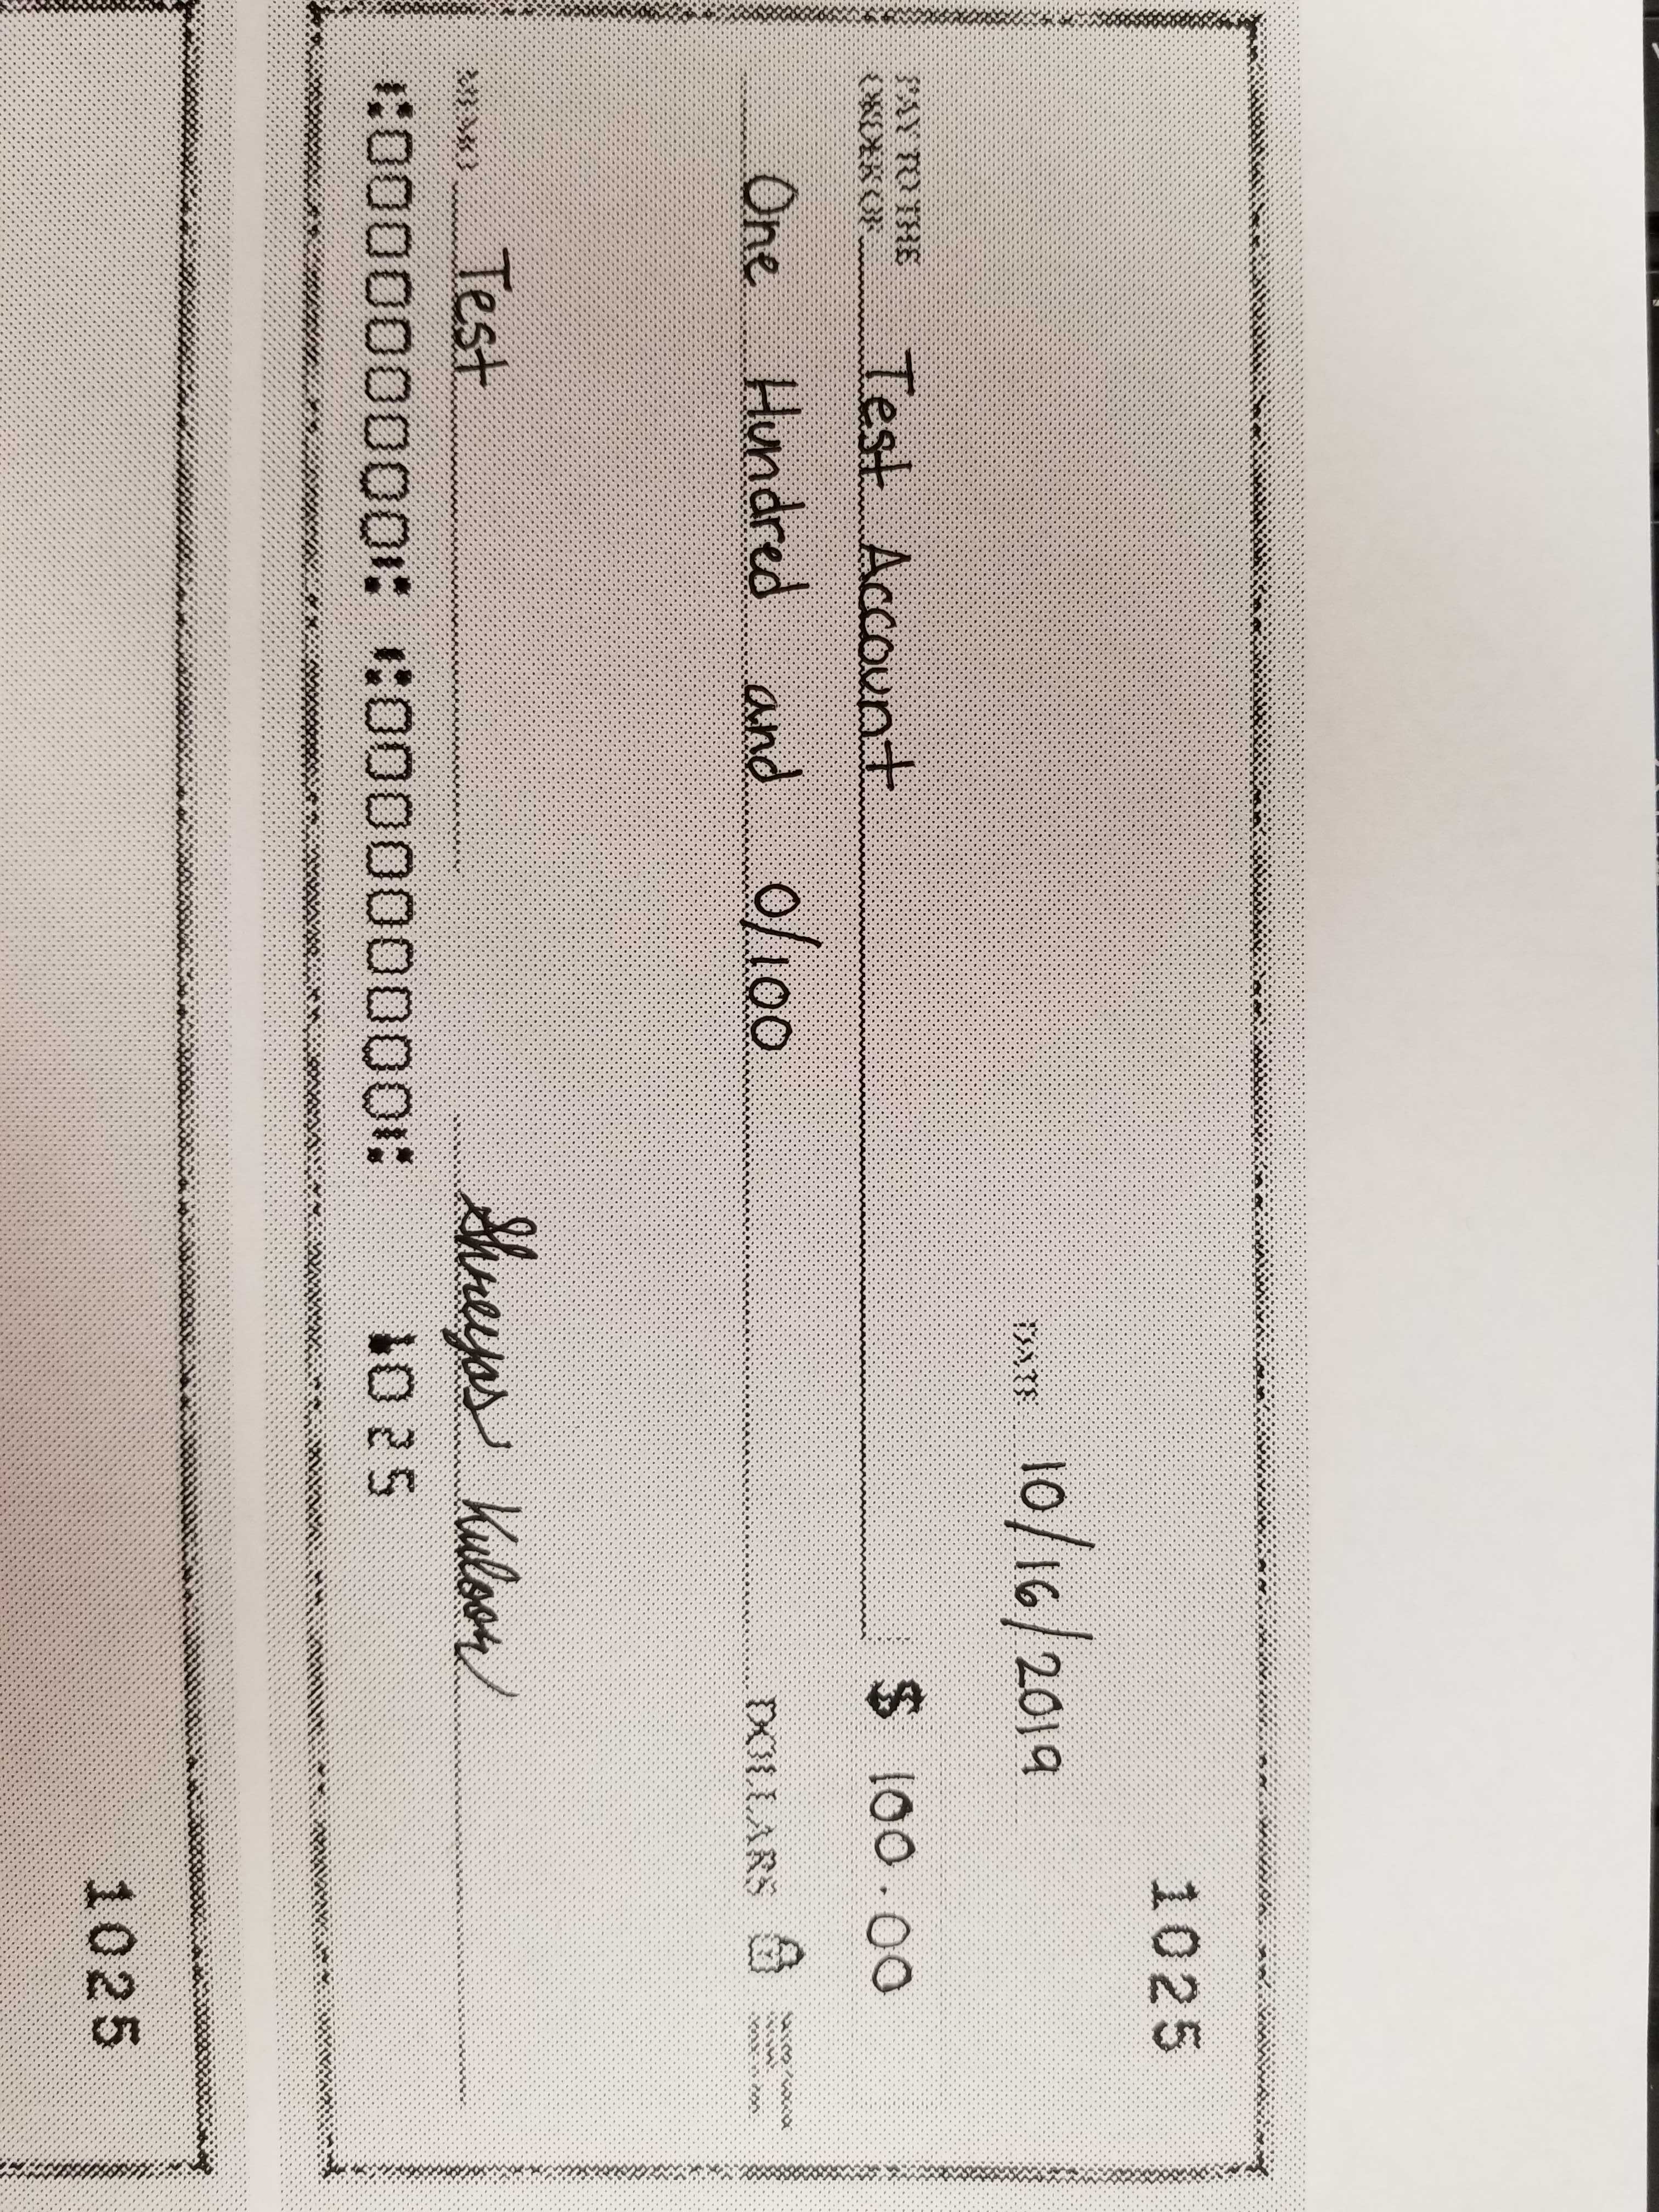 1025
DATE 10/16/2019
PAY TO THE
ORDER OF Test Account $ 100.00
One Hundred and 0/100 DOLLARS
MEMO Test Shreyas Kuloor
⑆000000000⑆ ⑆000000000⑆ 1025
1025